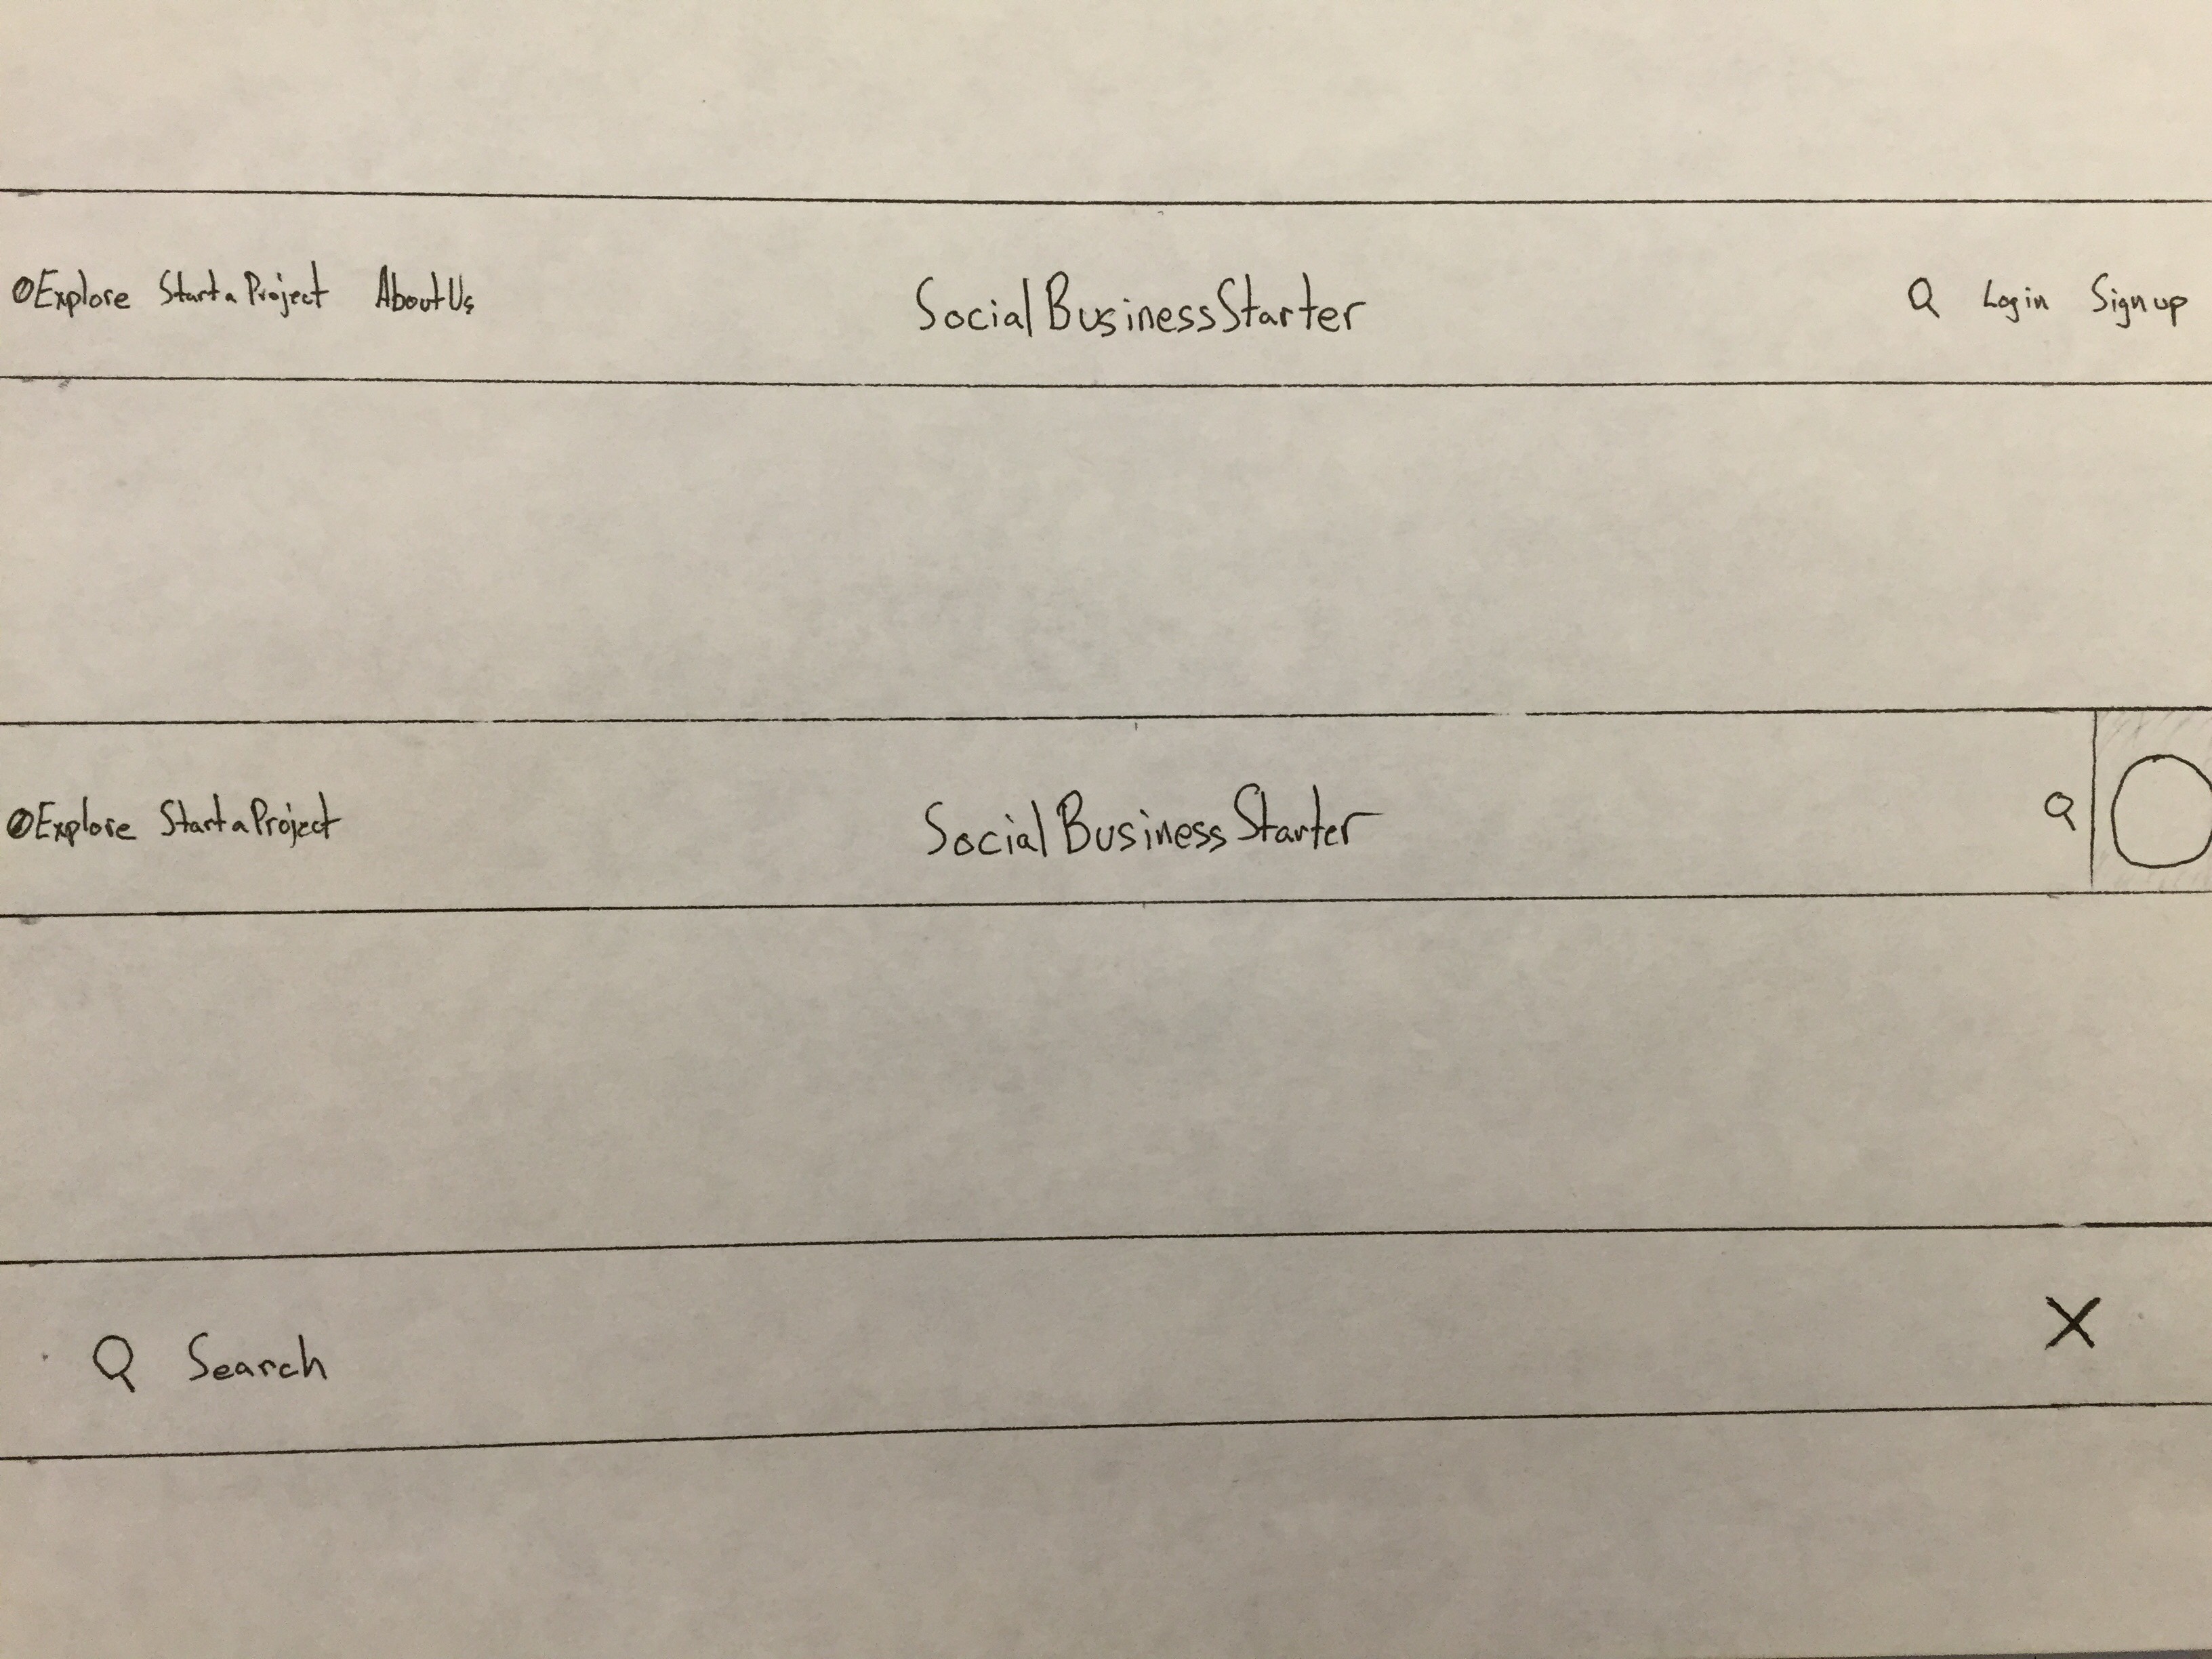 Explore Start a Project About Us SocialBusinessStarter Login Signup
Explore Start a Project SocialBusinessStarter
Search X